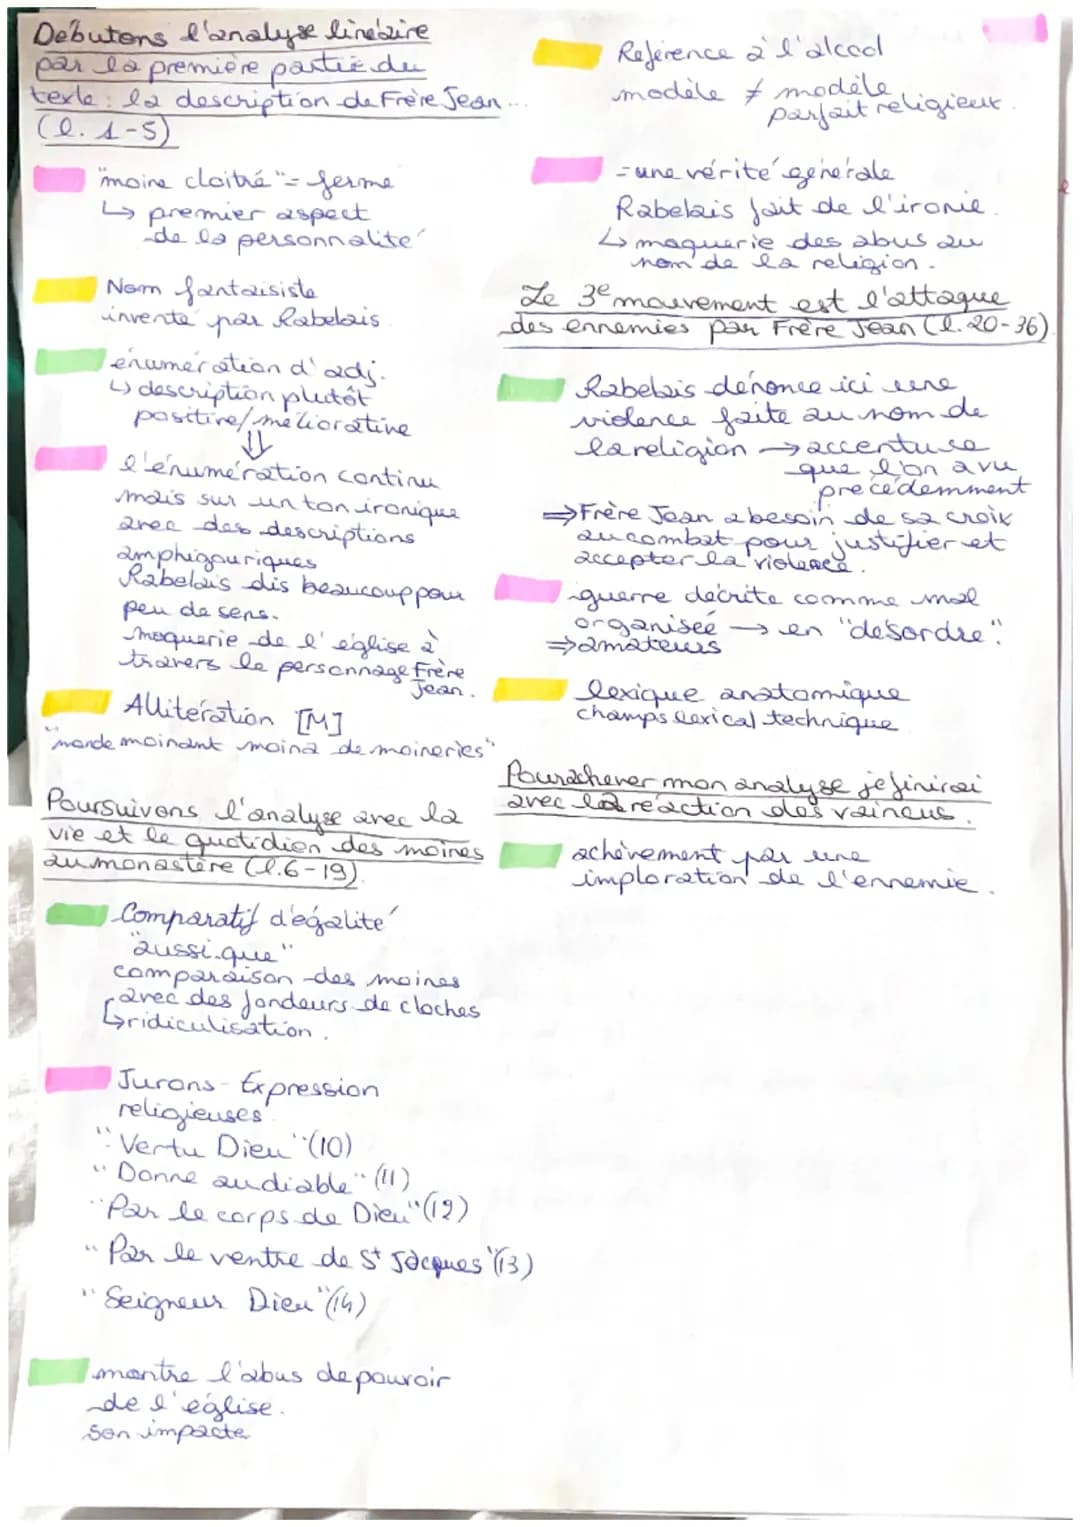 Débutons l'analyse linéaire
par la première partie du
texte : la description de Frère Jean...
(l. 1-5)
"moine cloitré" = fermé
↳ premier aspect
de la personnalité
Nom fantaisiste
inventé par Rabelais
énumération d'adj.
↳ description plutôt
positive/méliorative
⇓
l'énumération continu
mais sur un ton ironique
avec des descriptions
amphigouriques
Rabelais dis beaucoup pour
peu de sens.
moquerie de l'église à
travers le personnage Frère
Jean.
Allitération [M]
"monde moinant moina de moineries"
Poursuivons l'analyse avec la
vie et le quotidien des moines
au monastère (l.6-19).
Comparatif d'égalité
"aussi.que"
comparaison des moines
avec des fondeurs de cloches
↳ ridiculisation.
Jurons - Expression
religieuses
"Vertu Dieu" (10)
"Donne au diable" (11)
"Par le corps de Dieu" (12)
"Par le ventre de St Jacques" (13)
"Seigneur Dieu" (14)
montre l'abus de pouvoir
de l'église.
son impacte
Reférence à l'alcool
modèle ≠ modèle
parfait religieux.
= une vérité générale
Rabelais fait de l'ironie.
↳ moquerie des abus au
nom de la religion.
Le 3e mouvement est l'attaque
des ennemies par Frère Jean (l.20-36).
Rabelais dénonce ici une
violence faite au nom de
la religion → accentu se
que l'on a vu
précédemment
⇒ Frère Jean a besoin de sa croix
au combat pour justifier et
accepter la violence.
guerre décrite comme mal
organisée → en "désordre".
⇒ amateurs
lexique anatomique
champs lexical technique
Pour achever mon analyse je finirai
avec la réaction des vaincus.
achèvement par une
imploration de l'ennemie.